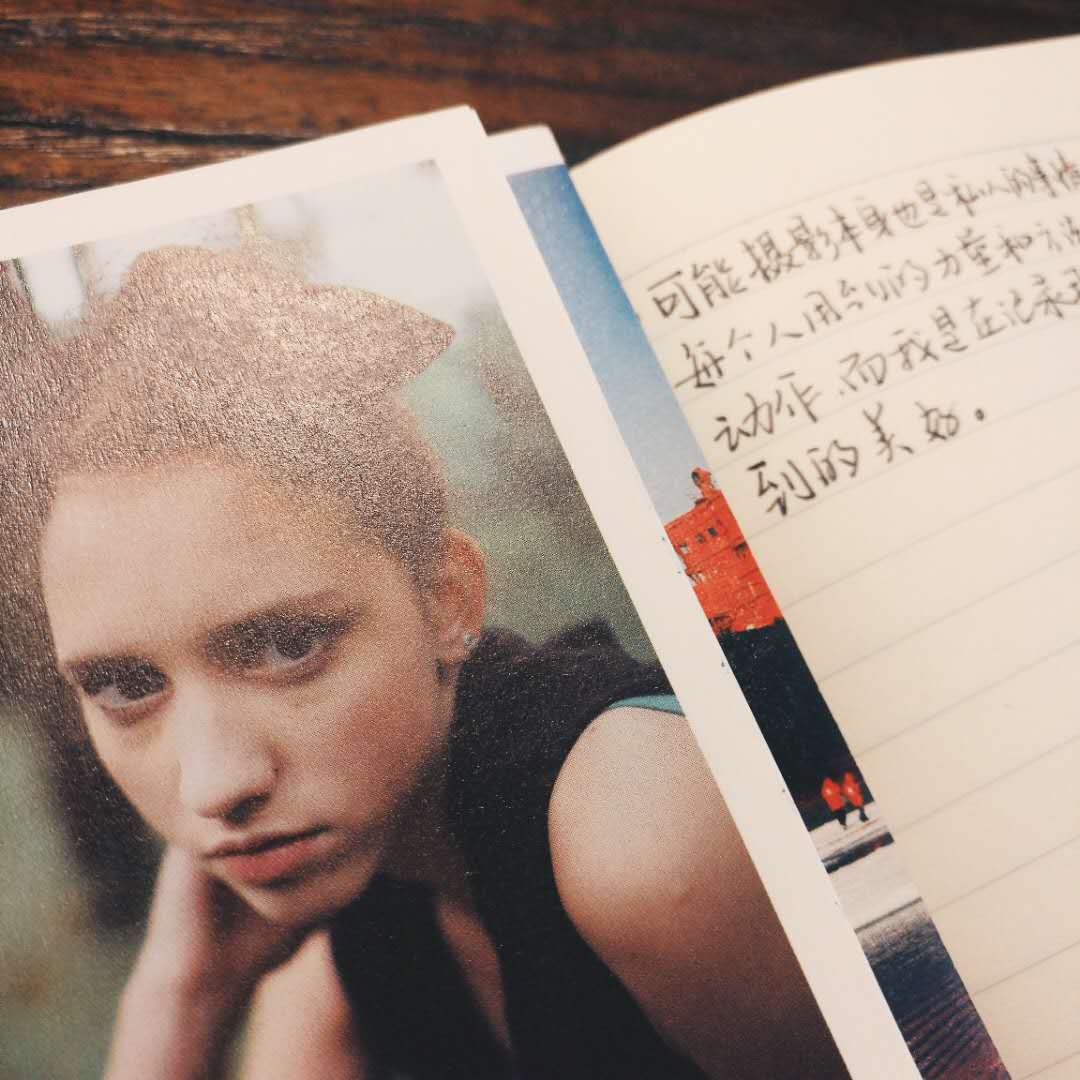 可能摄影本身也是私人的事情
每个人用到的力量和方
动作,而我是在记录
到的美好。